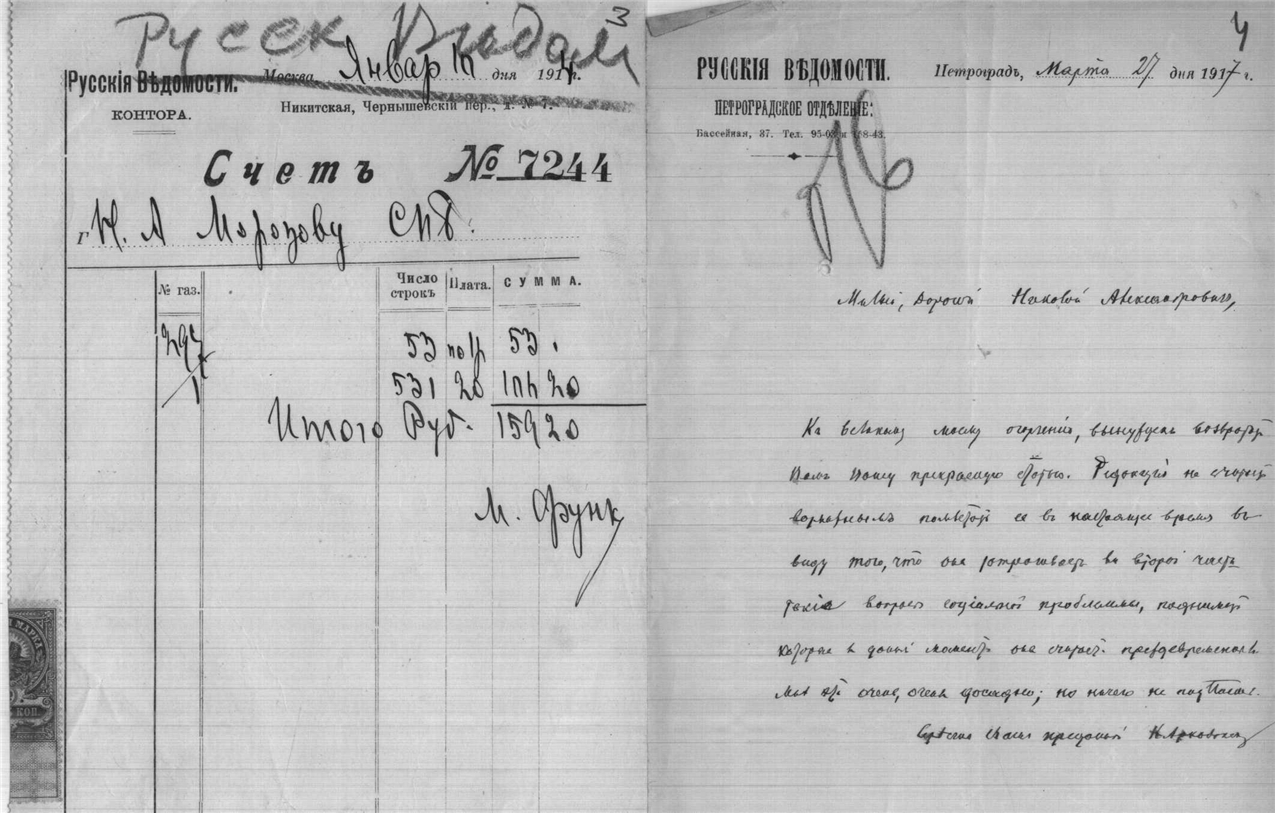 Русск Ведом
3
РУССКІЯ ВѢДОМОСТИ.
КОНТОРА.
Москва, Январ дня 191 г.
Никитская, Чернышевскій пер., д. № 7.
Счетъ № 7244
Г Н. А Морозову СПб.
№ газ.
Число строкъ
Плата.
СУММА.
53 по 1р 53
531 20 106 20
Итого Руб. 159 20
М. Функ
МАРКА
КОП.
4
РУССКІЯ ВѢДОМОСТИ.
Петроградъ, Марта 27 дня 1917 г.
ПЕТРОГРАДСКОЕ ОТДѢЛЕНІЕ:
Бассейная, 37. Тел.
Милый, дорогой Николай Александровичъ,
Къ великому моему огорченію, вынужденъ возвратить
Вамъ Вашу прекрасную статью. Редакція не считаетъ
возможнымъ помѣстить ее въ настоящее время въ
виду того, что она затрагиваетъ во второй части
такіе вопросы соціальной проблеммы, поднимать
которые въ данный моментъ она считаетъ преждевременнымъ
Мнѣ это очень, очень досадно; но ничего не
преданный